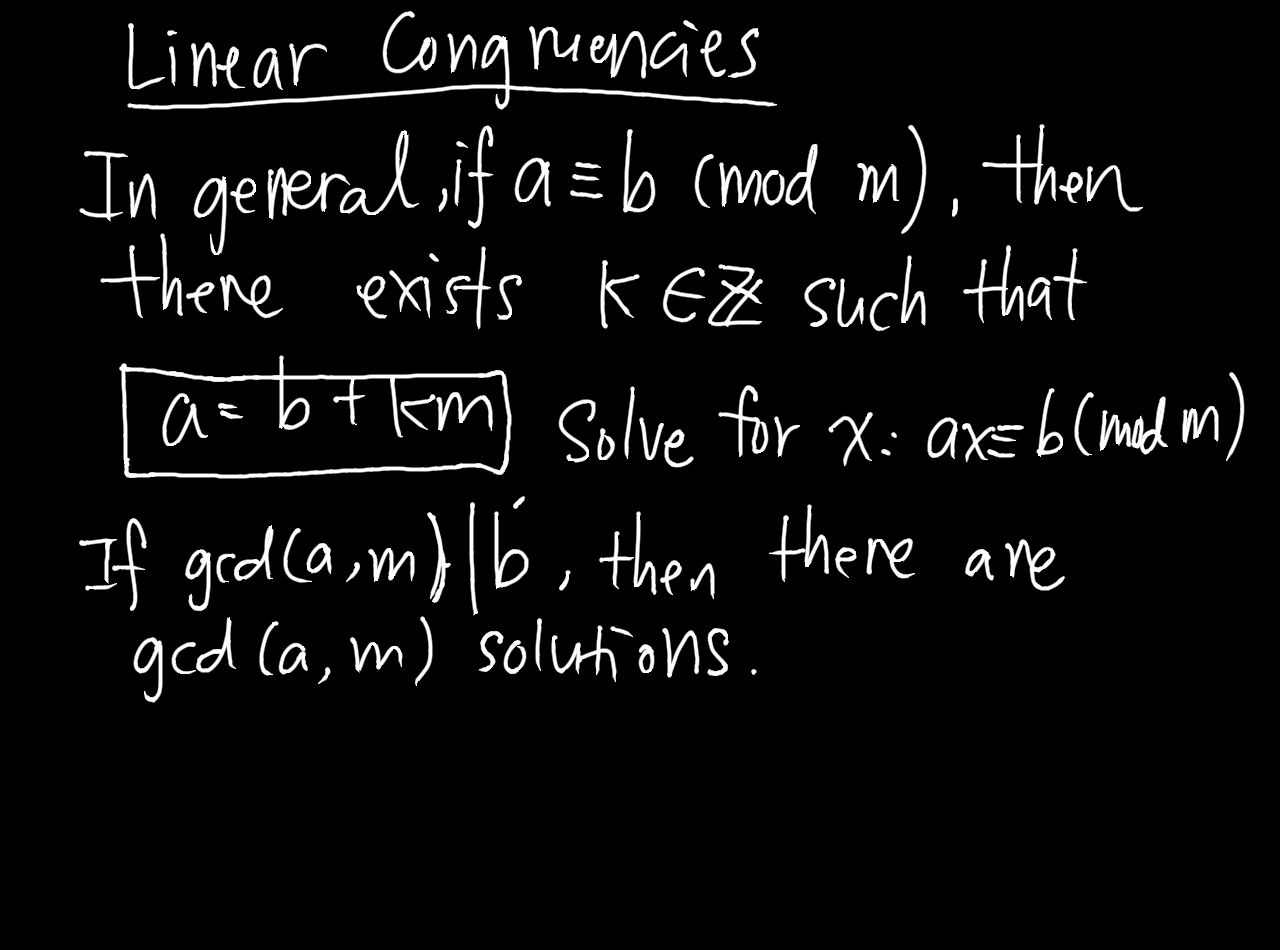 Linear Congruencies
In general, if a ≡ b (mod m), then
there exists k ∈ ℤ such that
a = b + km Solve for x: ax ≡ b (mod m)
If gcd(a,m) | b, then there are
gcd(a, m) solutions.